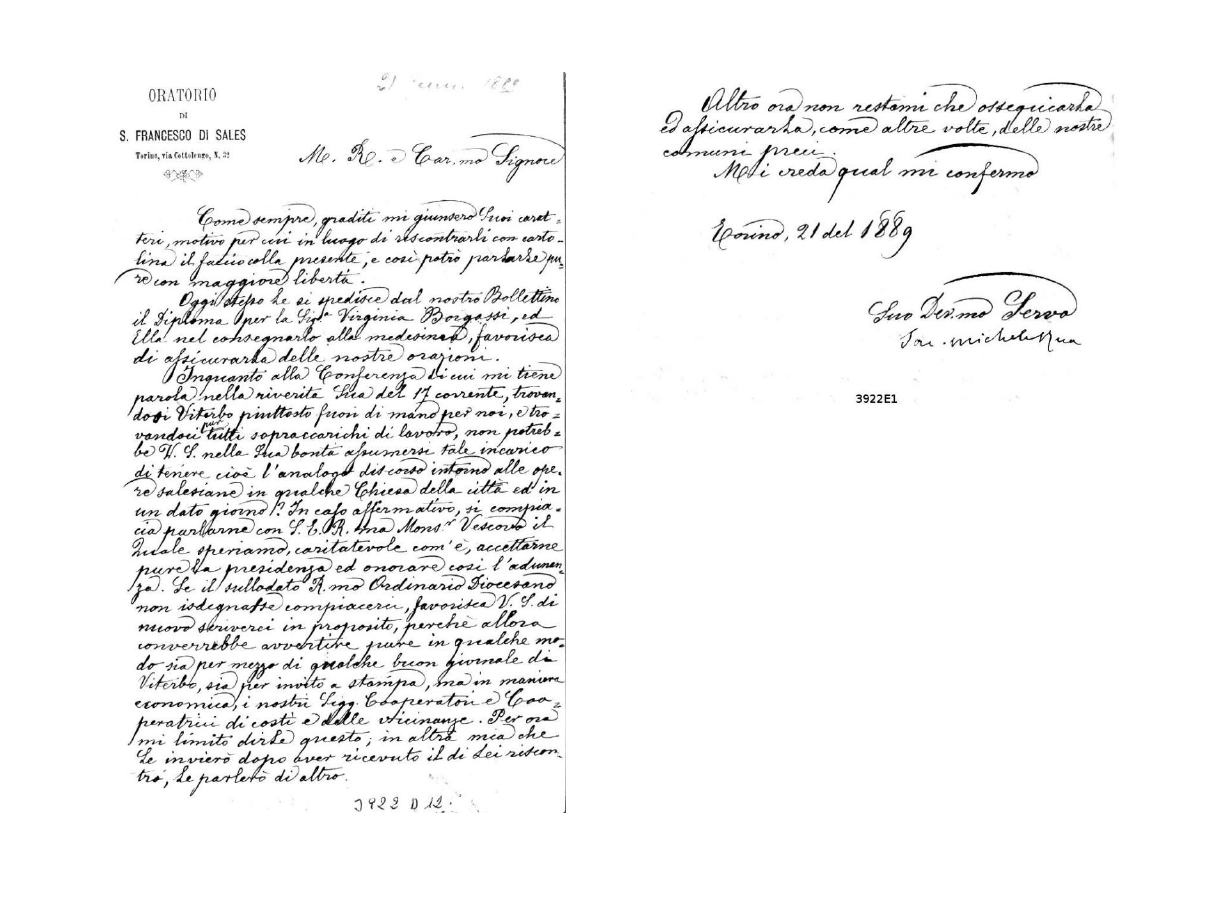 21 1889
ORATORIO
DI
S. FRANCESCO DI SALES
Torino, via Cottolengo, N. 32
M. R. e Car.mo Signore
Come sempre, graditi mi giunsero Suoi carat=
teri, motivo per cui in luogo di riscontrarli con carto-
lina il faccio colla presente, e così potrò parlarLe pu=
re con maggiore libertà.
Oggi stesso Le si spedisce dal nostro Bollettino
il Diploma per la Sig.ra Virginia Borgassi, ed
Ella nel consegnarlo alla medesima, favorisca
di assicurarla delle nostre orazioni.
Inquanto alla Conferenza di cui mi tiene
parola nella riverita Sua del 17 corrente, trovan=
dosi Viterbo piuttosto fuori di mano per noi, e tro=
vandoci pur tutti sopraccarichi di lavoro, non potreb=
be V. S. nella Sua bontà assumersi tale incarico
di tenere cioè l'analogo discorso intorno alle ope-
re salesiane in qualche Chiesa della città ed in
un dato giorno!? In caso affermativo, si compia=
cia parlarne con S. E. R.ma Mons.r Vescovo il
Quale speriamo, caritatevole com'è, accettarne
pure la presidenza ed onorare così l'adunan=
za. Se il sullodato R.mo Ordinario Diocesano
non isdegnasse compiacerci, favorisca V. S. di
nuovo scriverci in proposito, perchè allora
converrebbe avvertire pure in qualche mo-
do sia per mezzo di qualche buon giornale di
Viterbo, sia per invito a stampa, ma in maniera
economica, i nostri Sigg. Cooperatori e Coo=
peratrici di costì e delle vicinanze. Per ora
mi limito dirLe questo; in altra mia che
Le invierò dopo aver ricevuto il di Lei riscon-
tro, Le parlerò di altro.
3922 D 12.
Altro ora non restami che ossequiarLa
ed assicurarLa, come altre volte, delle nostre
comuni preci.
Mi creda qual mi confermo
Torino, 21 del 1889
Suo Dev.mo Servo
Sac. Michele Rua
3922E1